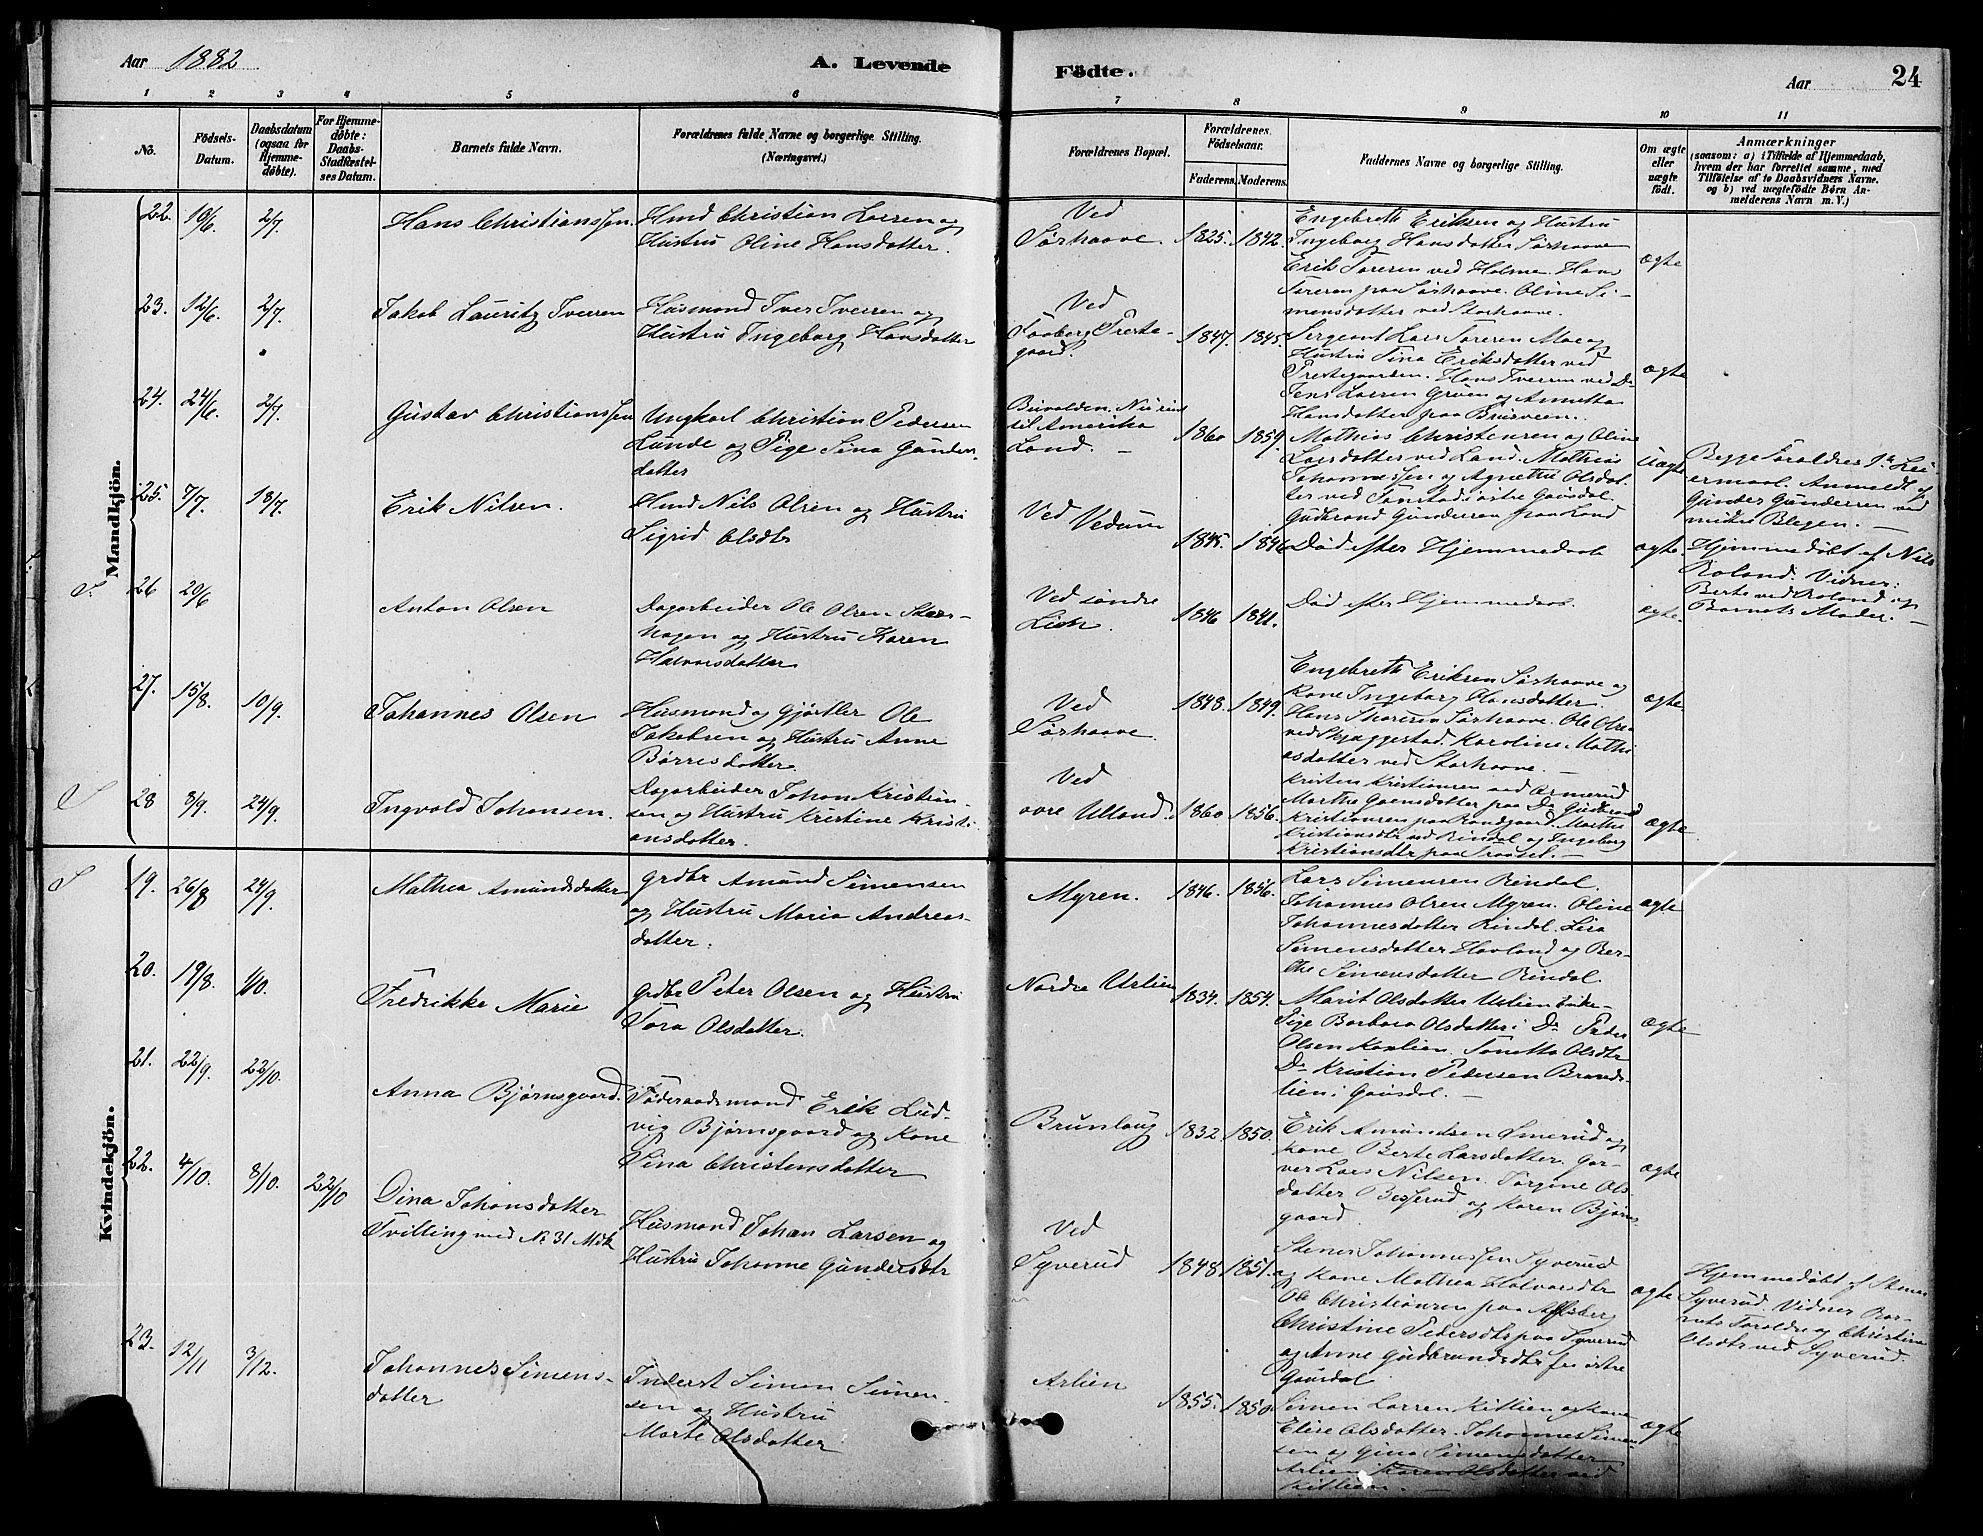 Aar 1882
A. Levende
Födte.
Aar
24
1 2 3 4 5 6 7 8 9 10 11
No.
Födsels-
Datum.
Daabsdatum
(ogsaa for
Hjemme-
døbte).
For Hjemme-
døbte:
Daabs-
Stadfæstel-
ses Datum.
Barnets fulde Navn.
Forældrenes fulde Navne og borgerlige Stilling.
(Næringsvei.)
Forældrenes Bopæl.
Forældrenes
Födselsaar.
Faderens. Moderens.
Faddernes Navne og borgerlige Stilling.
Om ægte
eller
uægte
födt.
Anmærkninger
(saasom: a) i Tilfælde af Hjemmedaab,
hvem der har forrettet samme, med
Tilföielse af to Daabsvidners Navne,
og b) ved uægtefödte Börn An-
melderens Navn m. V.)
Mandkjön.
22. 10/6. 2/7. Hans Christianssen.
Hmd Christian Larsen og
Hustru Oline Hansdatter.
Ved
Sørhaave.
1825. 1842.
Engebreth Eriksen og Hustru
Ingeborg Hansdatter Sørhaave
Erik Torersen ved Holme. Hans
Toresen paa Sørhaave. Oline Si-
mensdatter ved Storhaave.
ægte
23. 12/6. 2/7. Jakob Lauritz Iversen
Husmand Iver Iversen og
Hustru Ingeborg Hansdatter
Ved
Faaberg Preste-
gaard.
1847. 1845.
Sergeant Lars Toresen Moe og
Hustru Sina Eriksdatter ved
Prestegaarden. Hans Iversen ved Do
Jens Larsen Gruen og Annetta
Hansdatter paa Buisveen.
ægte
24. 24/6. 2/7. Gustav Christianssen
Ungkarl Christian Pedersen
Lunde og Pige Sina Gunders-
datter
til Amerika
Land. —
1860 1859.
Mathias Christensen og Oline
Larsdatter ved Land. Mathias
Johannessen og Agnethe Olsdat-
ter ved Tonstad i østre Gausdal
Gudbrand Gundersen paa Land
Uægte
Begge Forældres 1ste Lei-
ermaal. Anmeldt af
Gunder Gundersen ved
midtre Blegen. —
25. 7/7. 18/7. Erik Nilsen.
Hmd Nils Olsen og Hustru
Sigrid Olsdtr
Ved Vedum
1845. 1846
Død efter Hjemmedaab
ægte.
Hjemmedøbt af Nils
Roland. Vidner:
Berte ved Roland og
Barnets Moder. —
S. 26 20/6
Anton Olsen
Dagarbeider Ole Olsen Stor-
hagen og Hustru Karen
Halvorsdatter
Ved søndre
Lien.
1846 1841.
Død efter Hjemmedaab.
ægte.
27. 15/8. 10/9. Johannes Olsen
Husmand og Gjørtler Ole
Jakobsen og Hustru Anne
Børresdatter.
Ved
Sørhaave.
1848. 1849.
Engebreth Eriksen Sørhaave og
Kone Ingeborg Hansdatter.
Hans Thoresen Sørhaave. Ole Olsen
ved Skjæggestad. Karoline Mathi-
asdatter ved Storhaave. —
ægte
S 28 8/9. 24/9. Ingvald Johansen.
Dagarbeider Johan Kristian-
sen og Hustru Kristine Kristi-
ansdatter.
Ved
øvre Ulland.
1860 1856.
Kristen Kristiansen ved Smerud
Marthe Gaensdatter paa Do Gudbrand
Kristiansen paa Randgaard. Marthe
Kristiansdtr ved Rindal og Ingeborg
Kristiansdtr paa Traasel. —
ægte
Kvindekjön.
S 19. 26/8 24/9. Mathea Amundsdatter
grdbr Amund Simensen
og Hustru Maria Andreas-
datter.
Myren.
1846. 1856.
Lars Simensen Rindal.
Johannes Olsen Myren. Oline
Johannesdatter Rindal. Lisa
Simensdatter Havland og Ber-
the Simensdatter Rindal.
ægte
20. 19/8. 1/10. Fredrikke Marie
grdbr Peter Olsen og Hustru
Tora Olsdatter.
Nordre Urlien
1834. 1854.
Marit Olsdatter Urlien Enke-
Pige Barbara Olsdatter i Do Peder
Olsen Kavlien. Tonetta Olsdtr
Do Kristian Pedersen Brands-
lien i Gausdal. —
ægte
21. 22/9 22/10. Anna Bjørnsgaard.
Föderaadsmand Erik Lud-
vig Bjørnsgaard og Kone
Sina Christensdatter
Brunlaug
1832. 1850.
Erik Amundsen Smerud og
Kone Berte Larsdatter. Gar-
ver Lars Nilsen. Torgine Ols-
datter Besserud og Karen Bjørns-
gaard
ægte
22. 4/10. 8/10. 22/10
Dina Johansdatter
Tvilling med No 31 Mdk
Husmand Johan Larsen og
Hustru Johanne Gundersdtr
Ved
Syverud
1848 1851.
Stener Johannessen Syverud
og Kone Mathea Halvorsdtr
Ole Christiansen paa
Christine Pedersdtr paa Syverud
og Anne Gudbrandsdtr fra østre
Gausdal.
ægte
Hjemmedøbt af Stener
Syverud. Vidner Bar-
nets Foreldre og Christine
Olsdtr ved Syverud.
23. 12/11 3/12.
Johannes Simens-
datter
Inderst Simen Simen-
sen og Hustru
Marte Olsdatter
Arlien
1855. 1850
Simen Larsen Kitlien og Kone
Elise Olsdatter. Johannes Simen-
sen og Gina Simensdatter
Arlien Karen Olsdatter ved
Kitlien. —
ægte